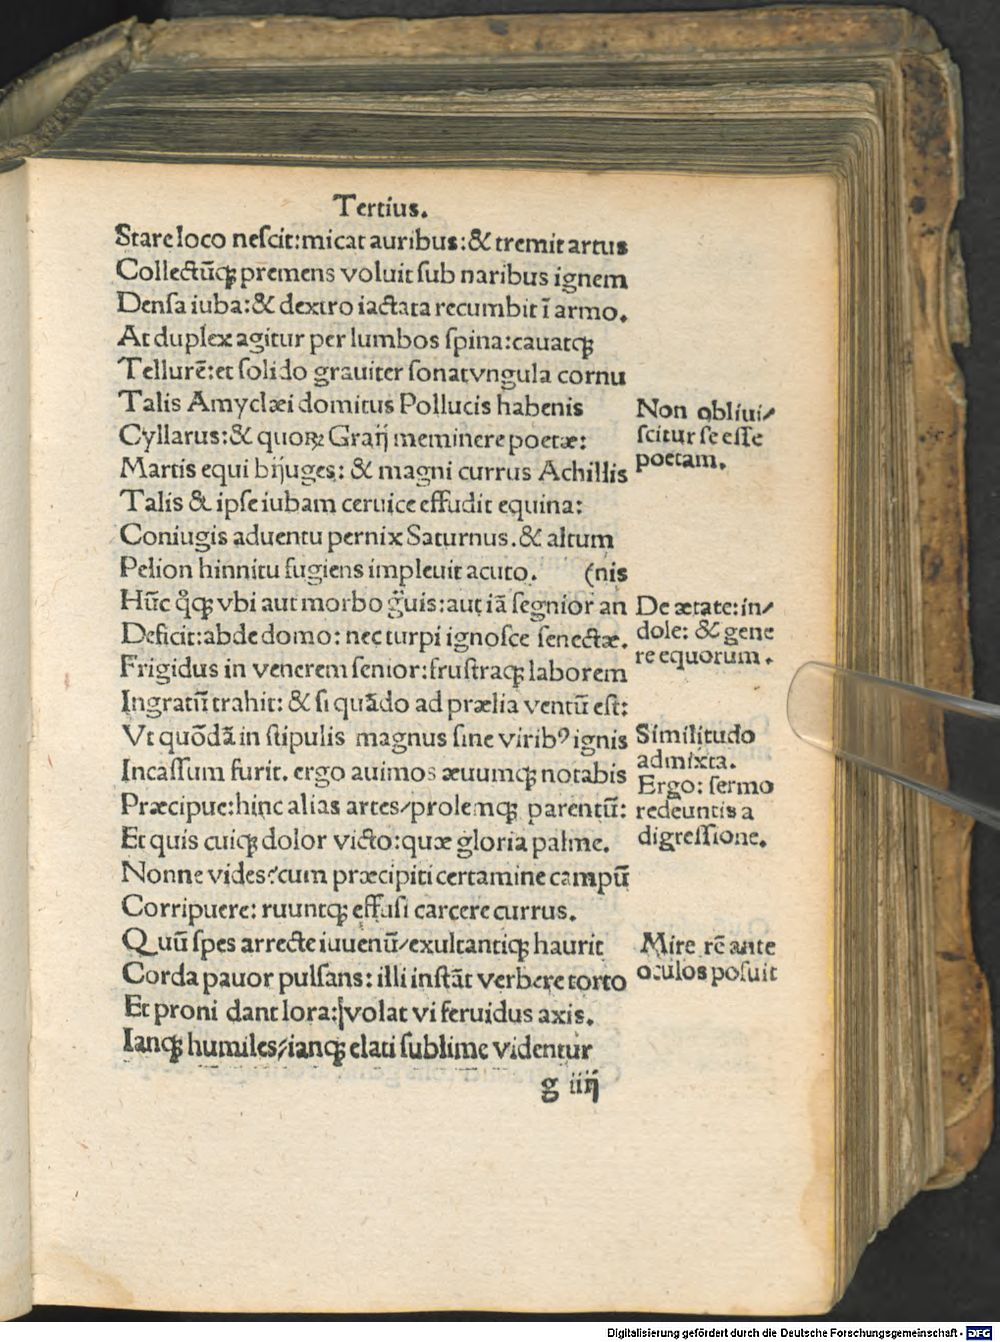 Tertius.
Stare loco nescit: micat auribus: & tremit artus
Collectūq; premens voluit sub naribus ignem
Densa iuba: & dextro iactata recumbit ī armo.
At duplex agitur per lumbos spina: cauatq;
Tellurē: et solido grauiter sonat vngula cornu
Talis Amyclæi domitus Pollucis habenis
Cyllarus: & quoꝝ Graij meminere poetæ:
Martis equi bijuges: & magni currus Achillis
Talis & ipse iubam ceruice effudit equina:
Coniugis aduentu pernix Saturnus. & altum
Pelion hinnitu fugiens impleuit acuto. (nis
Hūc q̊q; vbi aut morbo g̃uis: aut iā segnior an
Deficit: abde domo: nec turpi ignosce senectæ.
Frigidus in venerem senior: frustraq; laborem
Ingratū trahit: & si quādo ad prælia ventū est:
Vt quōdā in stipulis magnus sine viribꝰ ignis
Incassum furit. ergo auimos æuumq; notabis
Præcipue: hinc alias artes/prolemq; parentū:
Et quis cuiq; dolor victo: quæ gloria palme.
Nonne vides? cum præcipiti certamine campū
Corripuere: ruuntq; effusi carcere currus.
Quū spes arrecte iuuenū/exultantiq; haurit
Corda pauor pulsans: illi instāt verbere torto
Et proni dant lora: volat vi feruidus axis.
Iamq; humiles/iamq; elati sublime videntur
g iiij
Non obliui/
scitur se esse
poetam.
De ætate: in/
dole: & gene
re equorum.
Similitudo
admixta.
Ergo: sermo
redeuntis a
digressione.
Mire rē ante
oculos posuit
Digitalisierung gefördert durch die Deutsche Forschungsgemeinschaft - DFG